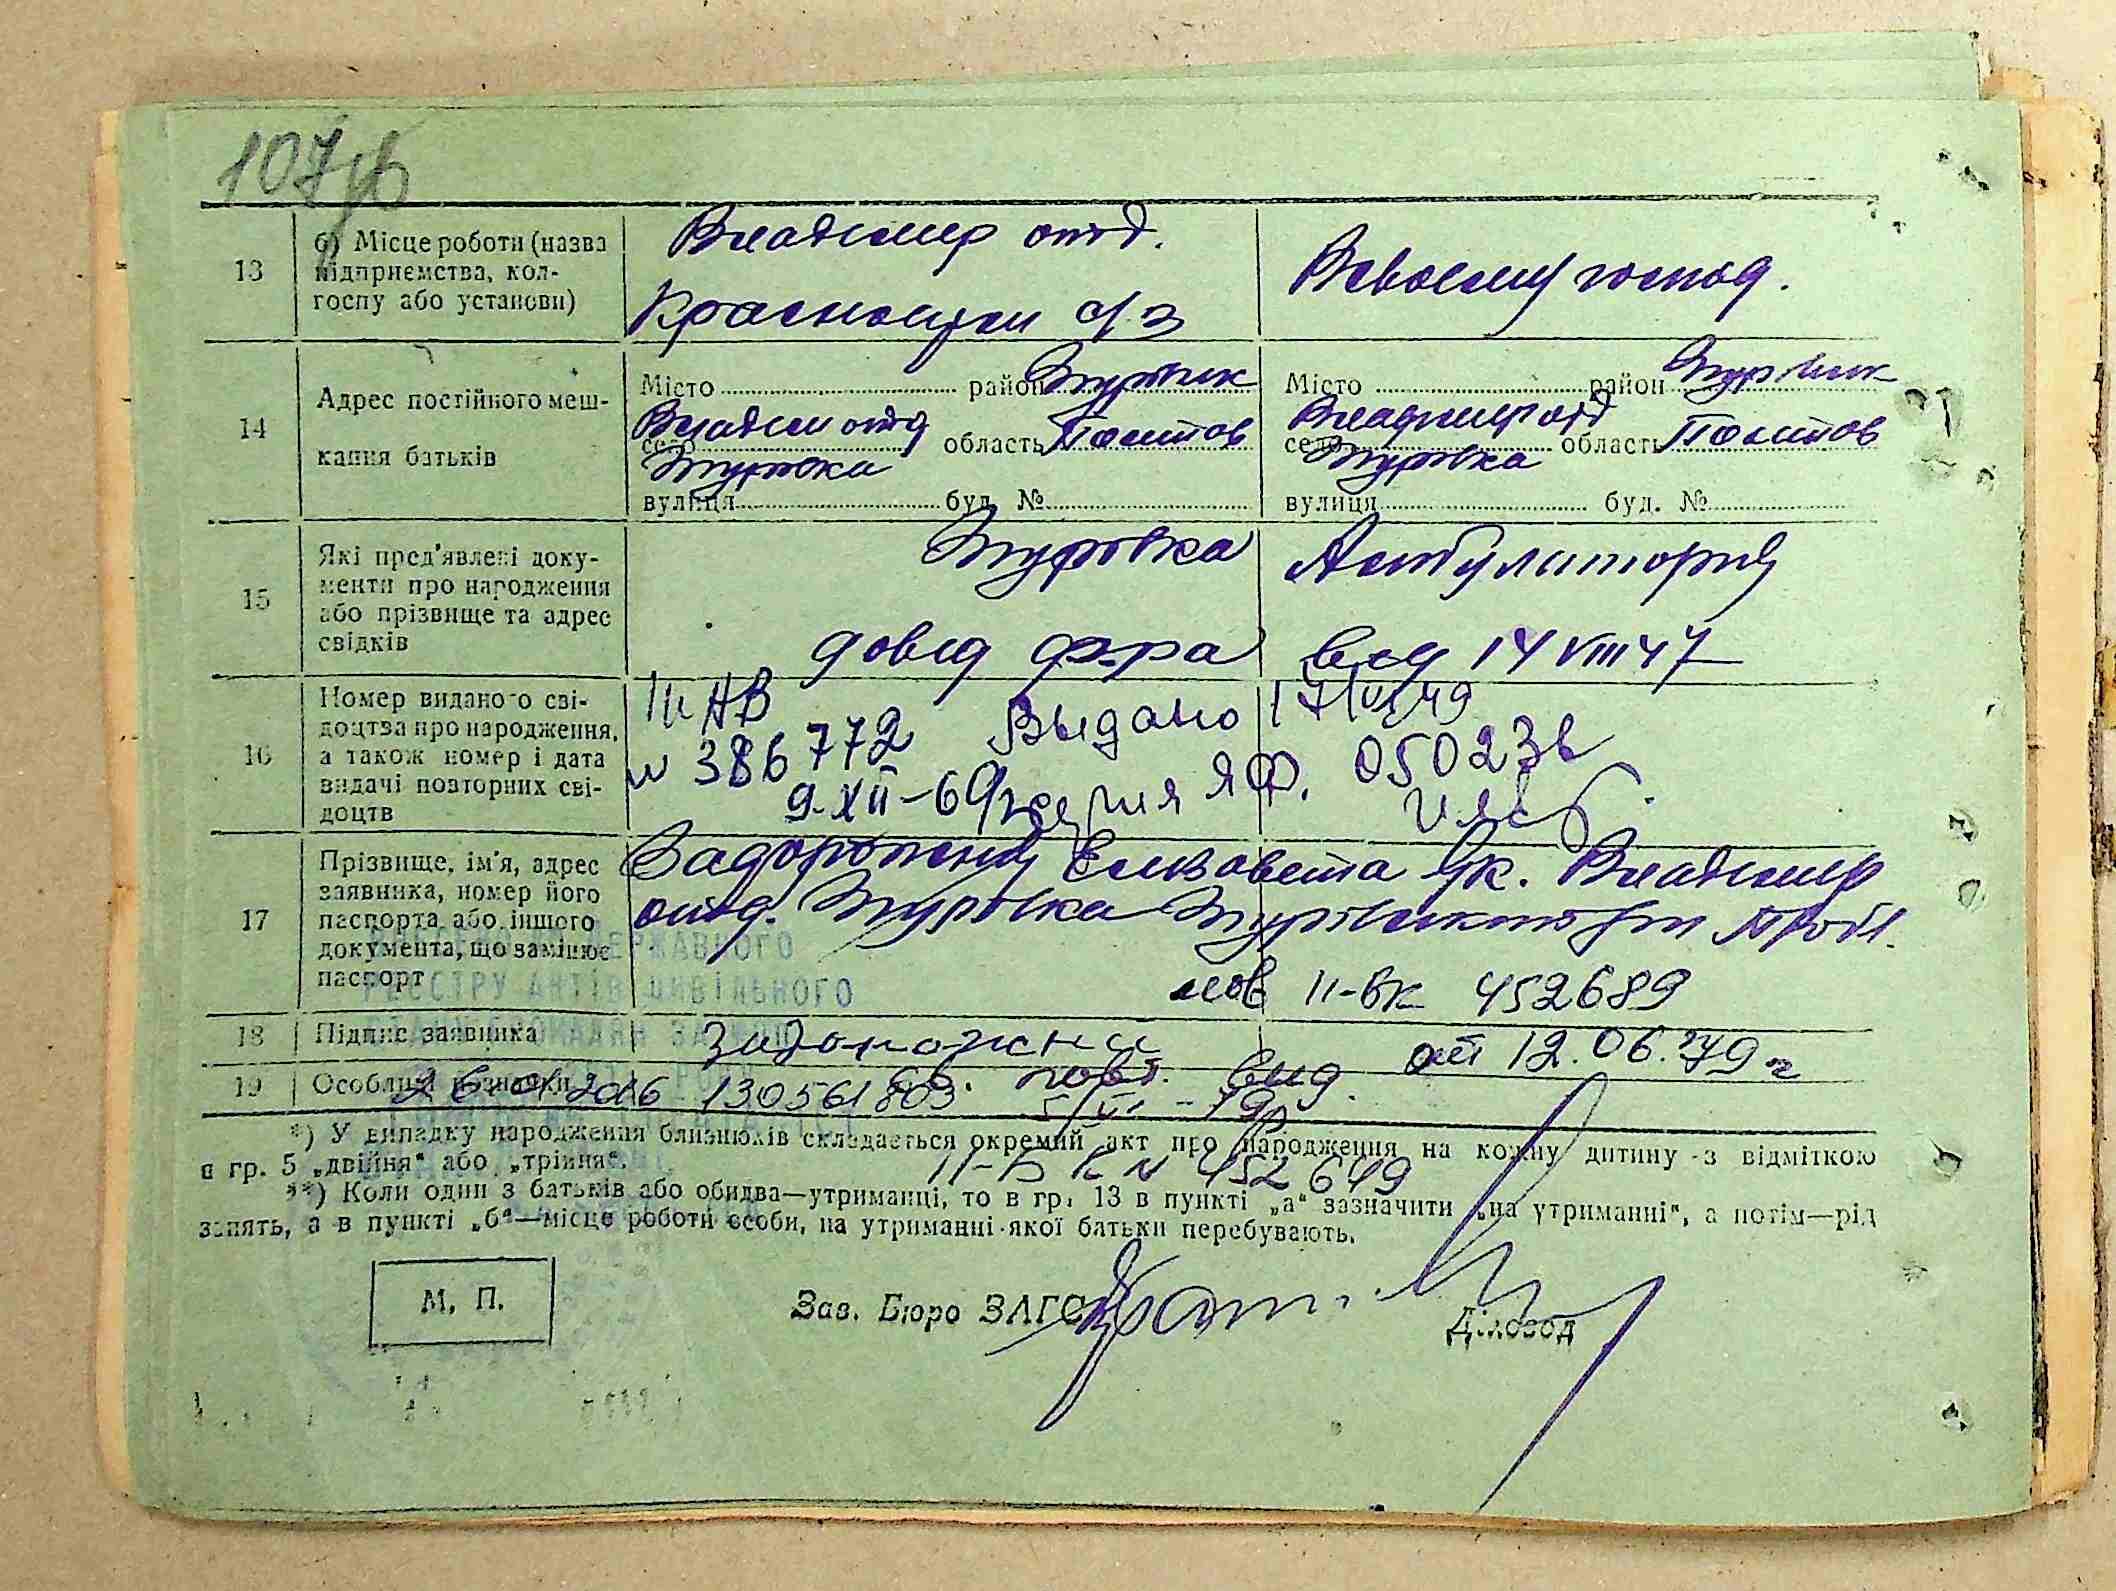 107зв
13
б) Місце роботи (назва
підприємства, кол-
госпу або установи)
Владимир отд.
Красноярск с/з
Всвоему господ.
14
Адрес постійного меш-
кання батьків
Місто район Згурівск
Владим отд
село область Полтов
Згуровка
вулиця буд. №
Місто район Згурівск
Владимир отд
село область Полтов
Згуровка
вулиця буд. №
15
Які пред'явлені доку-
менти про народження
або прізвище та адрес
свідків
Згуровка Амбулаторія
довід ф-ра від 14 VIII 47
16
Номер виданого сві-
доцтва про народження,
а також номер і дата
видачі повторних сві-
доцтв
АВ
№ 386772 Выдано 17/VI 49
9-XII-69 серия ЯФ. 050232
17
Прізвище, ім'я, адрес
заявника, номер його
паспорта або іншого
документа, що замінює
паспорт
Задорожня Елизавета Ук. Владимир
отд. Згуровка
II-БК 452689
ДЕРЖАВНОГО
РЕЄСТРУ АКТІВ ЦИВІЛЬНОГО
18
Підпис заявника
Задорожня
от 12.06.79 г
19
Особливі позначки
26 01 2016 130561803. повт. вид.
II-БК № 452649
*) У випадку народження близнюків складається окремий акт про народження на кожну дитину з відміткою
в гр. 5 „двійня" або „трійня".
**) Коли один з батьків або обидва—утриманці, то в гр. 13 в пункті „а" зазначити „на утриманні", а потім—рід
занять, а в пункті „б"—місце роботи особи, на утриманні якої батьки перебувають.
М. П.
Зав. Бюро ЗАГС
Діловод